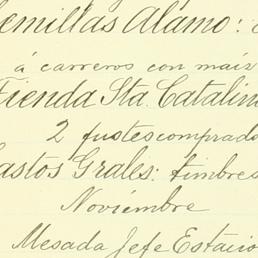 emillas Alamo:
á carreros con maiz
Tienda Sta. Catalin
2 fustes comprad
astos Grales: timbres
Noviémbre
Mesada Jefe Estacio